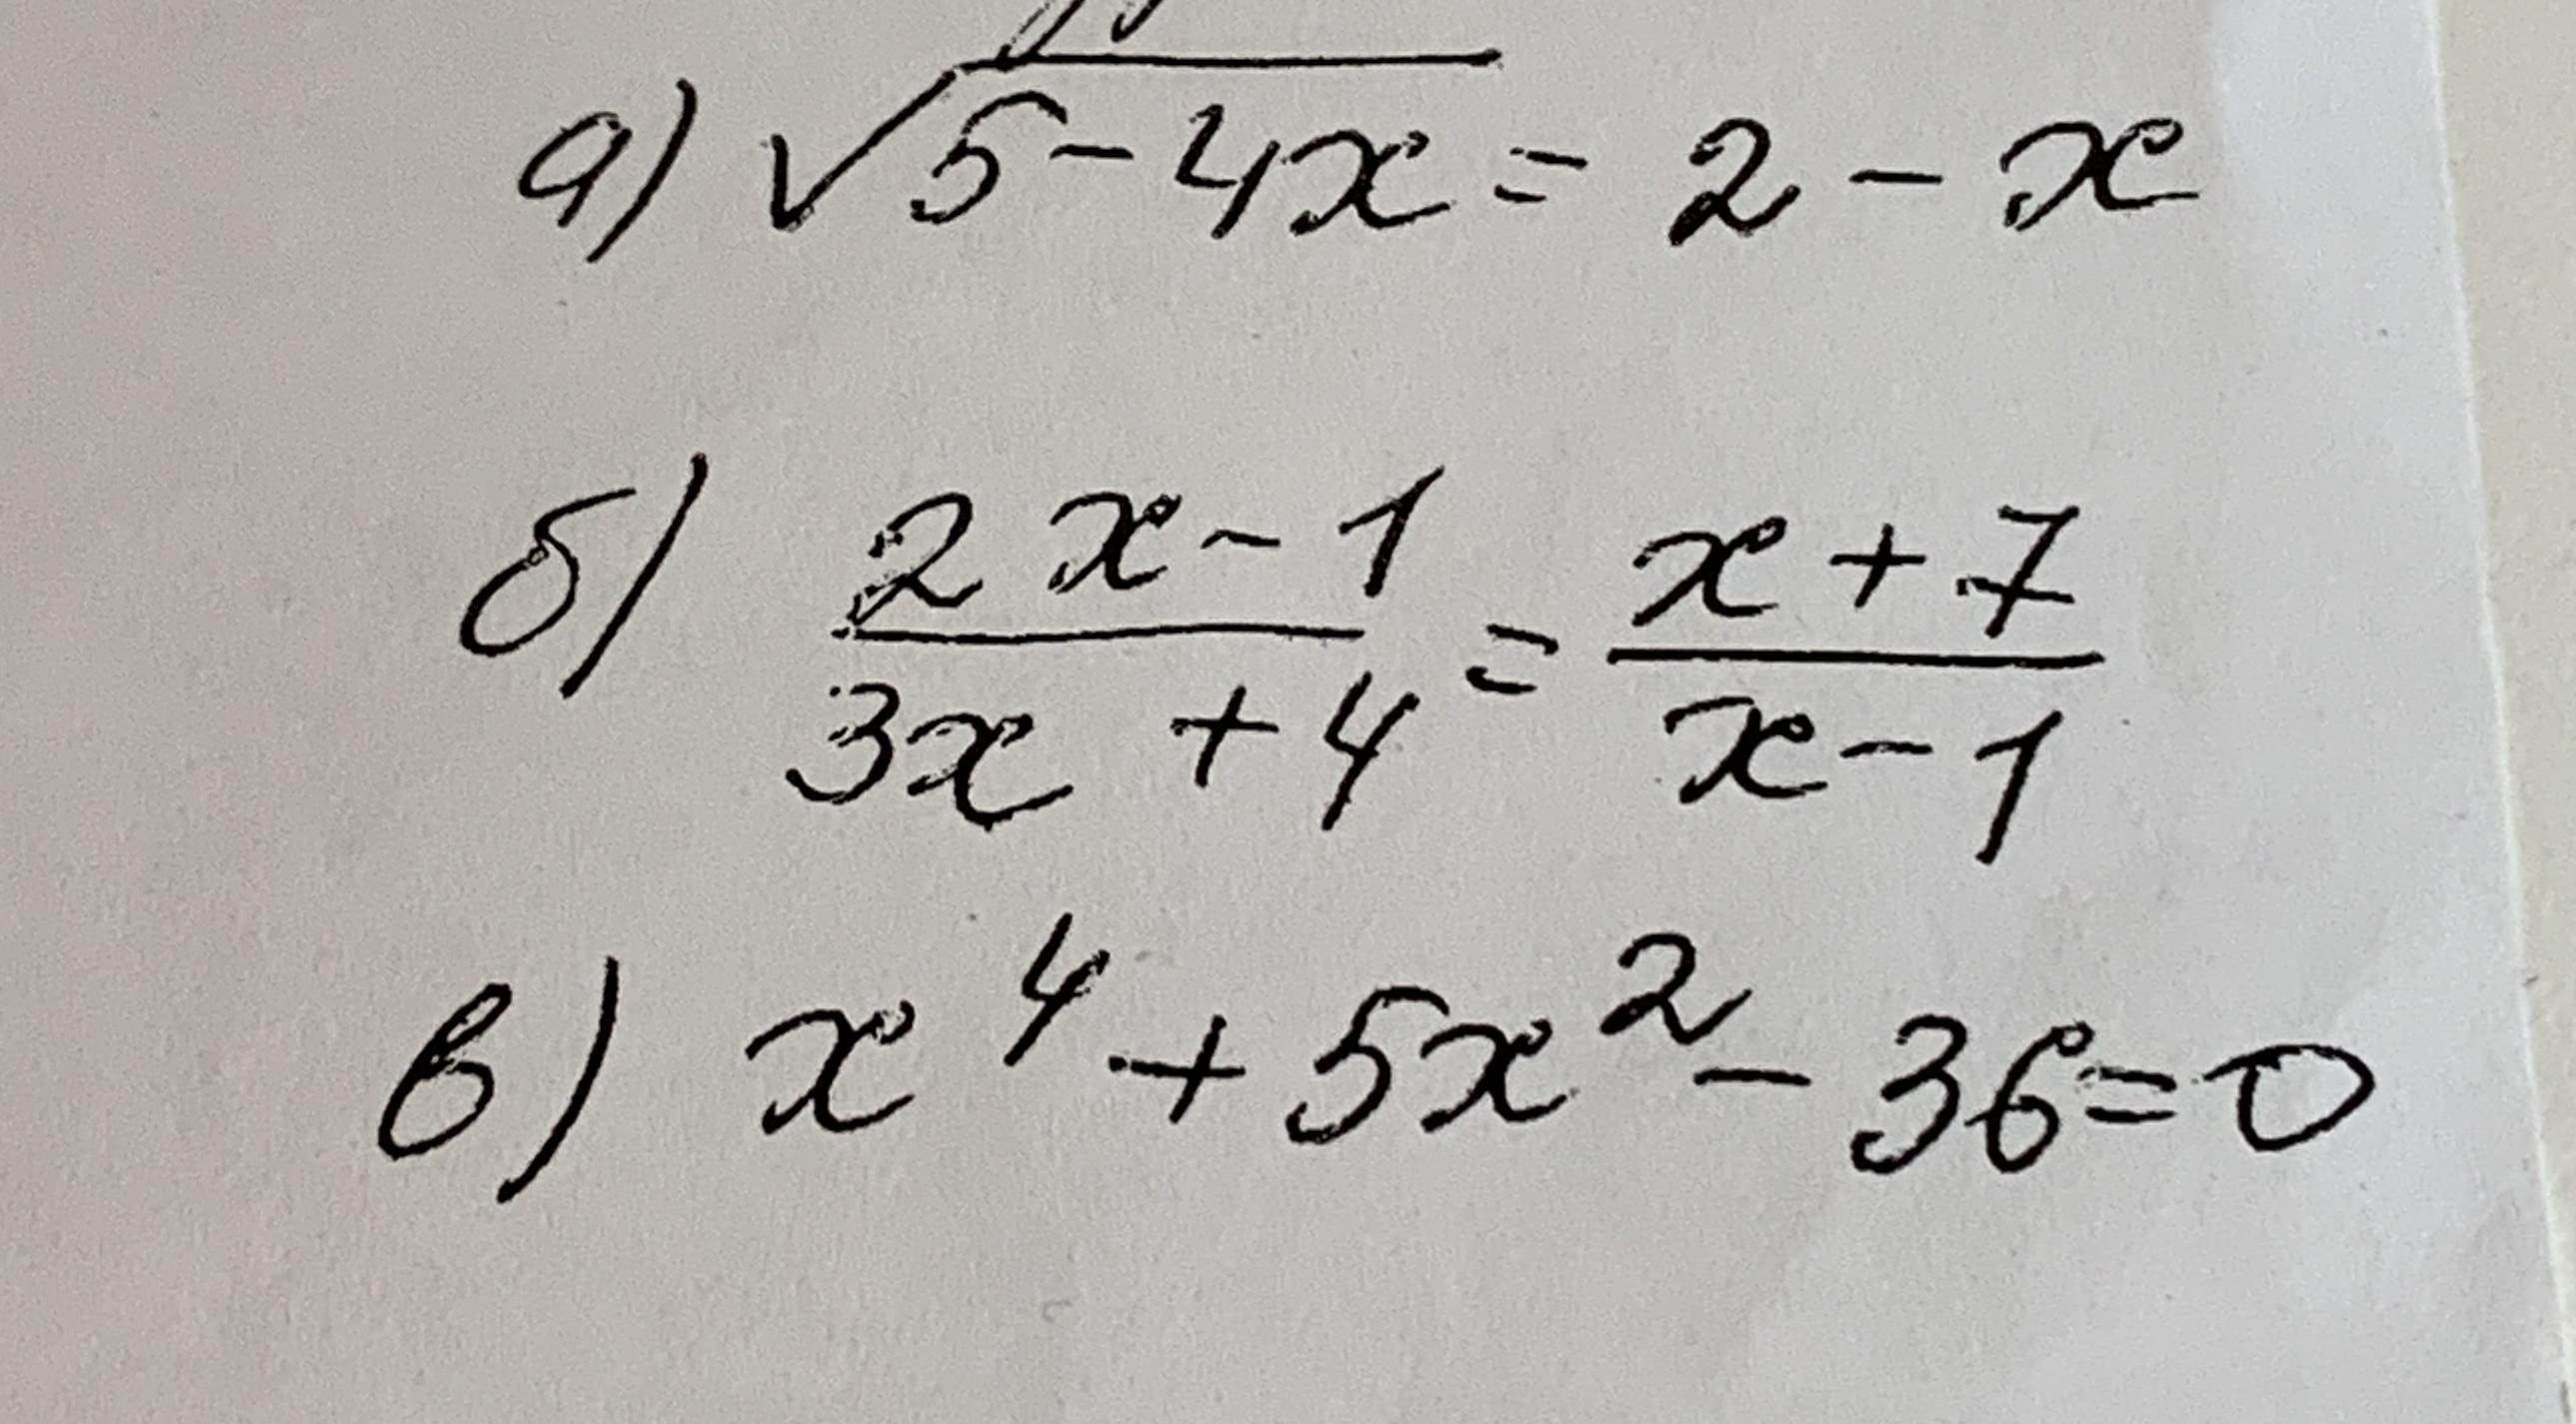 а) √5-4x = 2 - x
б) (2x-1)/(3x+4) = (x+7)/(x-1)
в) x⁴ + 5x² - 36 = 0